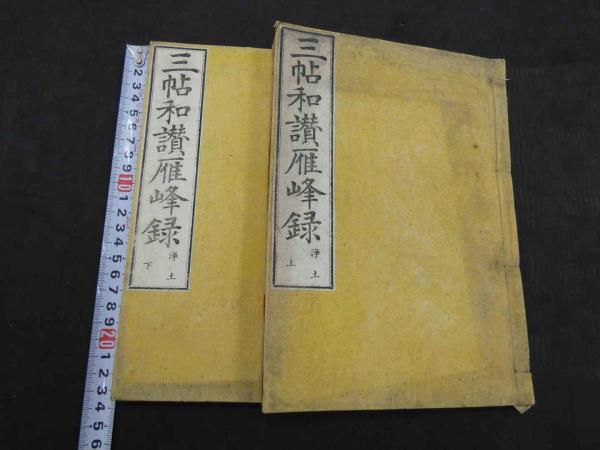 三帖和讃雁峰録
浄土
上
三帖和讃雁峰録
浄土
下
2 3 4 5 6 7 8 9 10 1 2 3 4 5 6 7 8 9 20 1 2 3 4 5 6